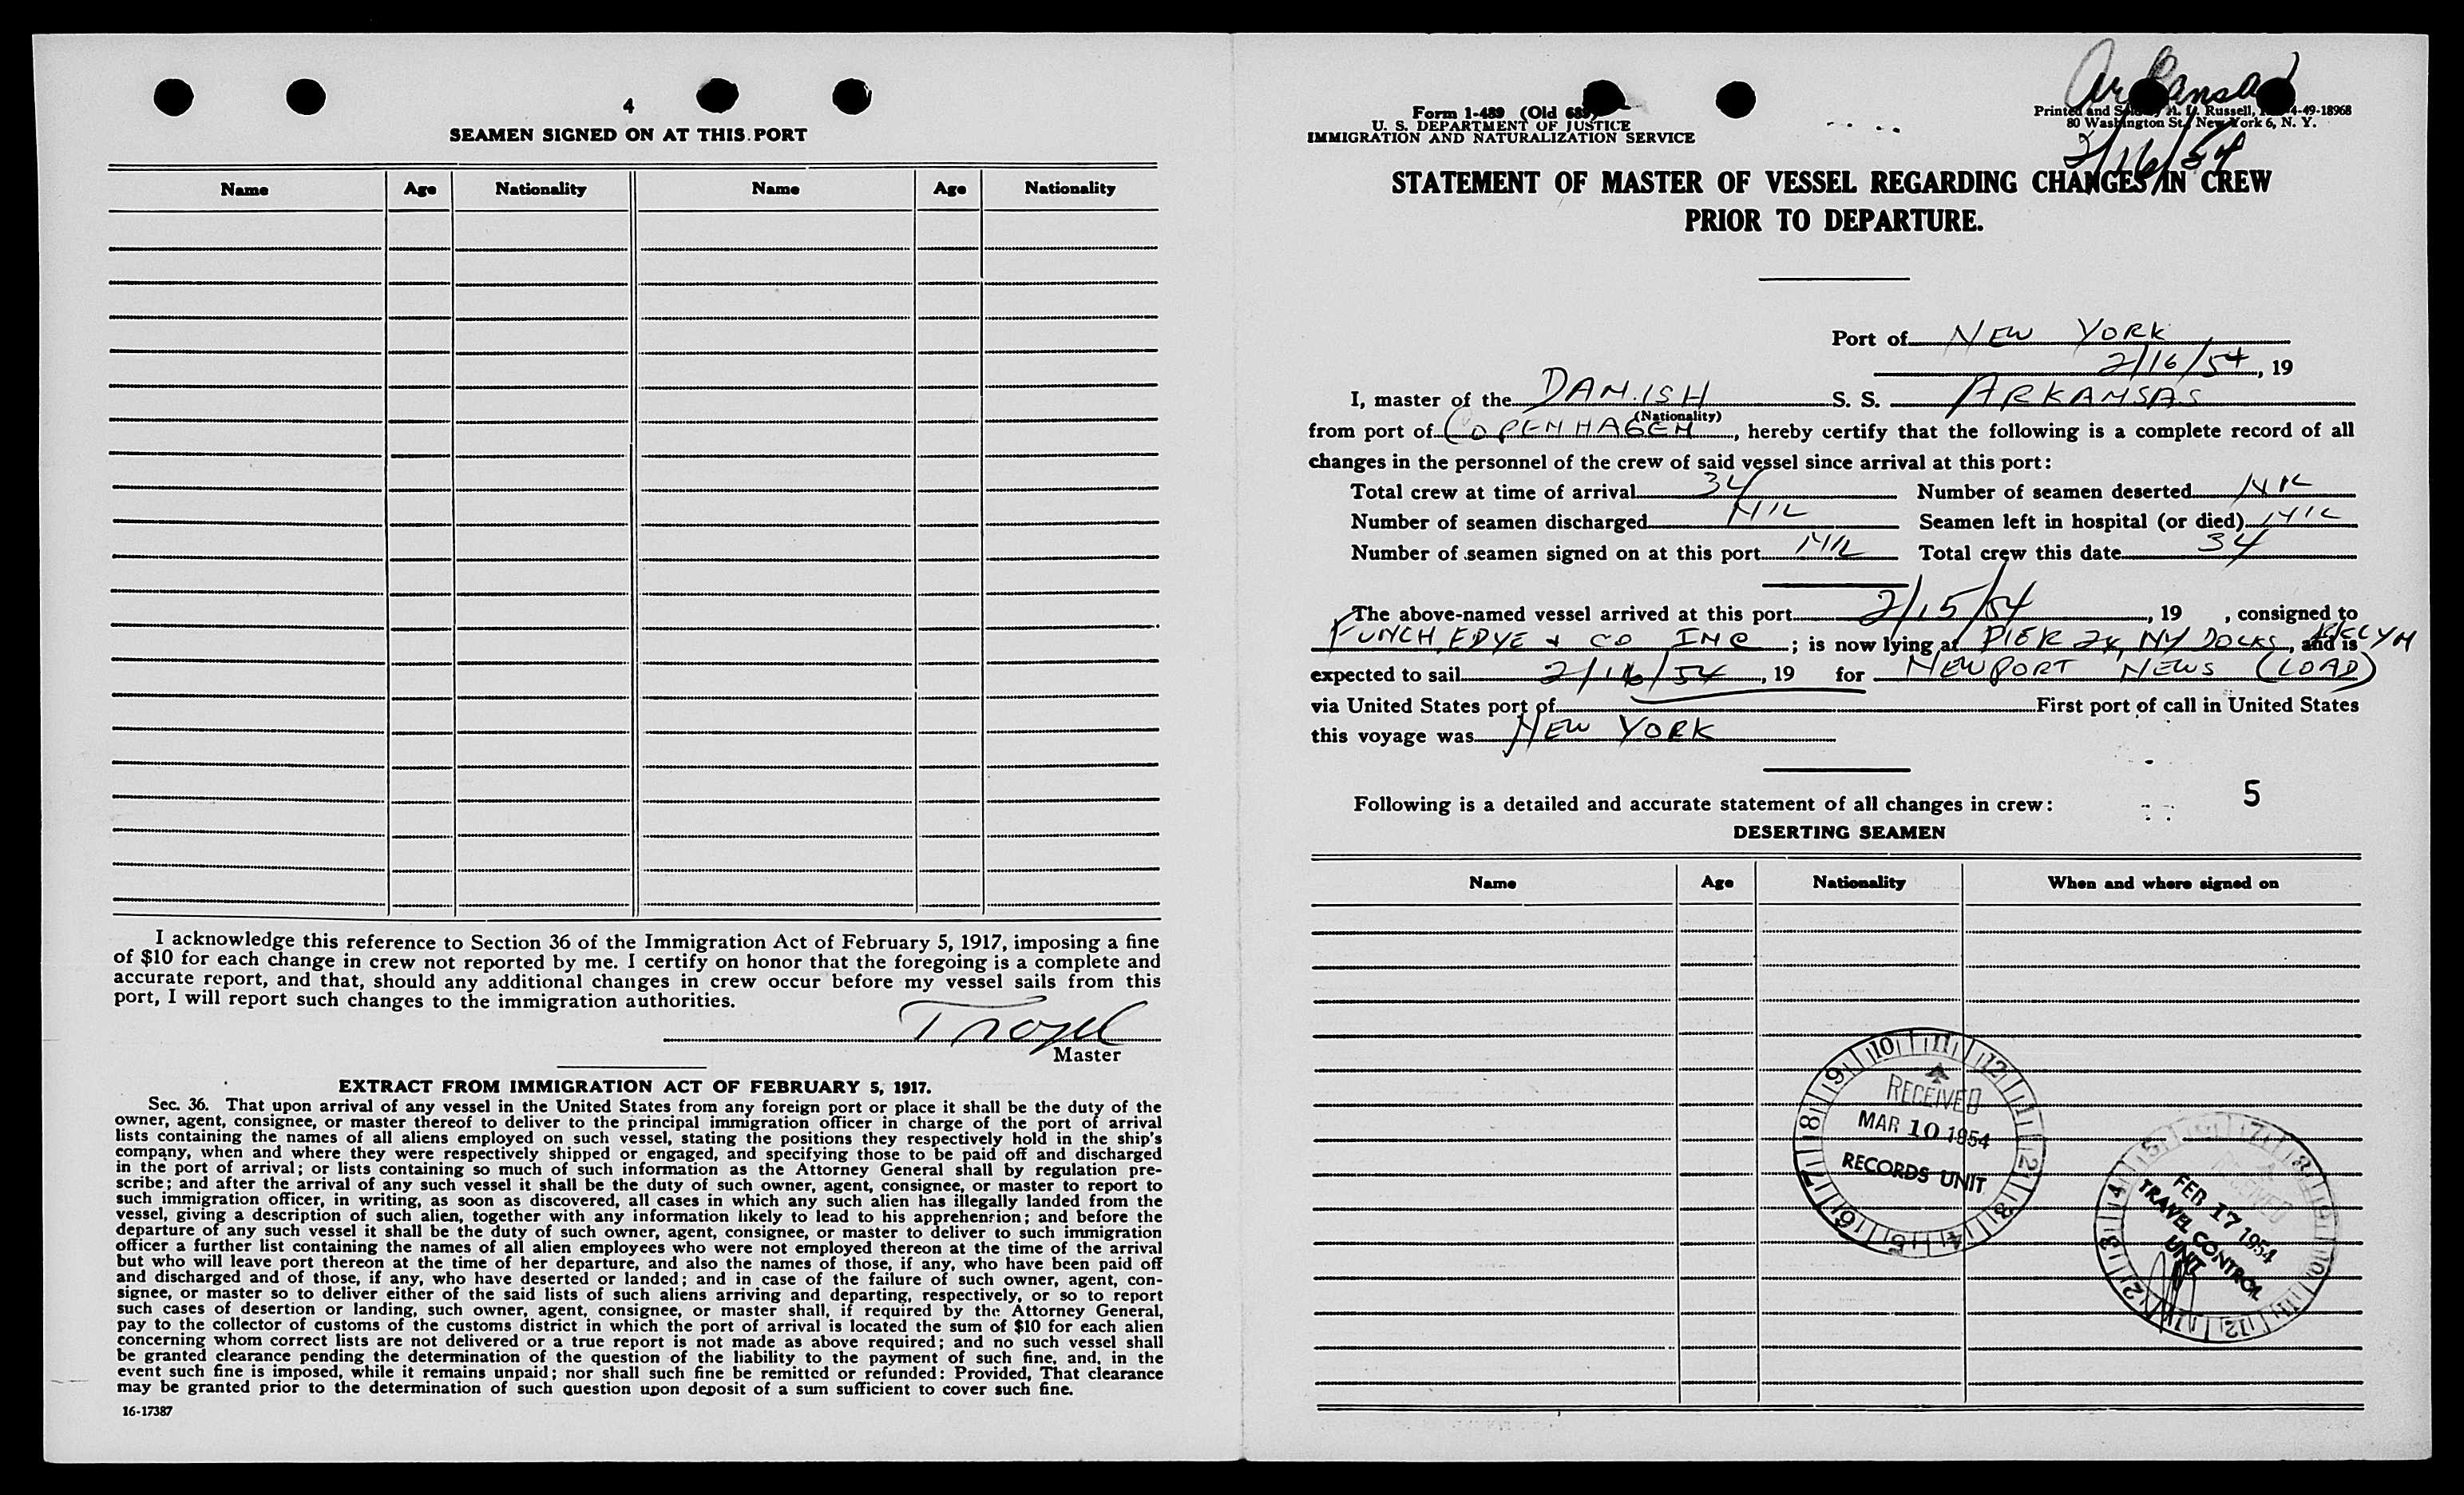 4
SEAMEN SIGNED ON AT THIS PORT
Name Age Nationality Name Age Nationality
I acknowledge this reference to Section 36 of the Immigration Act of February 5, 1917, imposing a fine
of $10 for each change in crew not reported by me. I certify on honor that the foregoing is a complete and
accurate report, and that, should any additional changes in crew occur before my vessel sails from this
port, I will report such changes to the immigration authorities.
Master
EXTRACT FROM IMMIGRATION ACT OF FEBRUARY 5, 1917.
Sec. 36. That upon arrival of any vessel in the United States from any foreign port or place it shall be the duty of the
owner, agent, consignee, or master thereof to deliver to the principal immigration officer in charge of the port of arrival
lists containing the names of all aliens employed on such vessel, stating the positions they respectively hold in the ship's
company, when and where they were respectively shipped or engaged, and specifying those to be paid off and discharged
in the port of arrival; or lists containing so much of such information as the Attorney General shall by regulation pre-
scribe; and after the arrival of any such vessel it shall be the duty of such owner, agent, consignee, or master to report to
such immigration officer, in writing, as soon as discovered, all cases in which any such alien has illegally landed from the
vessel, giving a description of such alien, together with any information likely to lead to his apprehension; and before the
departure of any such vessel it shall be the duty of such owner, agent, consignee, or master to deliver to such immigration
officer a further list containing the names of all alien employees who were not employed thereon at the time of the arrival
but who will leave port thereon at the time of her departure, and also the names of those, if any, who have been paid off
and discharged and of those, if any, who have deserted or landed; and in case of the failure of such owner, agent, con-
signee, or master so to deliver either of the said lists of such aliens arriving and departing, respectively, or so to report
such cases of desertion or landing, such owner, agent, consignee, or master shall, if required by the Attorney General,
pay to the collector of customs of the customs district in which the port of arrival is located the sum of $10 for each alien
concerning whom correct lists are not delivered or a true report is not made as above required; and no such vessel shall
be granted clearance pending the determination of the question of the liability to the payment of such fine, and, in the
event such fine is imposed, while it remains unpaid; nor shall such fine be remitted or refunded: Provided, That clearance
may be granted prior to the determination of such question upon deposit of a sum sufficient to cover such fine.
16-17387
Arkansas
2/16/54
Form 1-489 (Old 689)
U. S. DEPARTMENT OF JUSTICE
IMMIGRATION AND NATURALIZATION SERVICE
Printed and Sold by Russell, 4-49-18968
80 Washington St., New York 6, N. Y.
STATEMENT OF MASTER OF VESSEL REGARDING CHANGES IN CREW
PRIOR TO DEPARTURE.
Port of NEW YORK
2/16/54, 19
I, master of the DANISH S. S. ARKANSAS
(Nationality)
from port of COPENHAGEN, hereby certify that the following is a complete record of all
changes in the personnel of the crew of said vessel since arrival at this port:
Total crew at time of arrival 34 Number of seamen deserted NIL
Number of seamen discharged NIL Seamen left in hospital (or died) NIL
Number of seamen signed on at this port NIL Total crew this date 34
The above-named vessel arrived at this port 2/15/54, 19 , consigned to
FUNCH EDYE & CO INC; is now lying at PIER 24, NY DOCKS, BKLYN and is
expected to sail 2/16/54, 19 for NEWPORT NEWS (LOAD)
via United States port of First port of call in United States
this voyage was NEW YORK
5
Following is a detailed and accurate statement of all changes in crew:
DESERTING SEAMEN
Name Age Nationality When and where signed on
10 11 12 1 2 3 4 5 6 7 8 9
RECEIVED
MAR 10 1954
RECORDS UNIT
RECEIVED
FEB 17 1954
TRAVEL CONTROL
UNIT